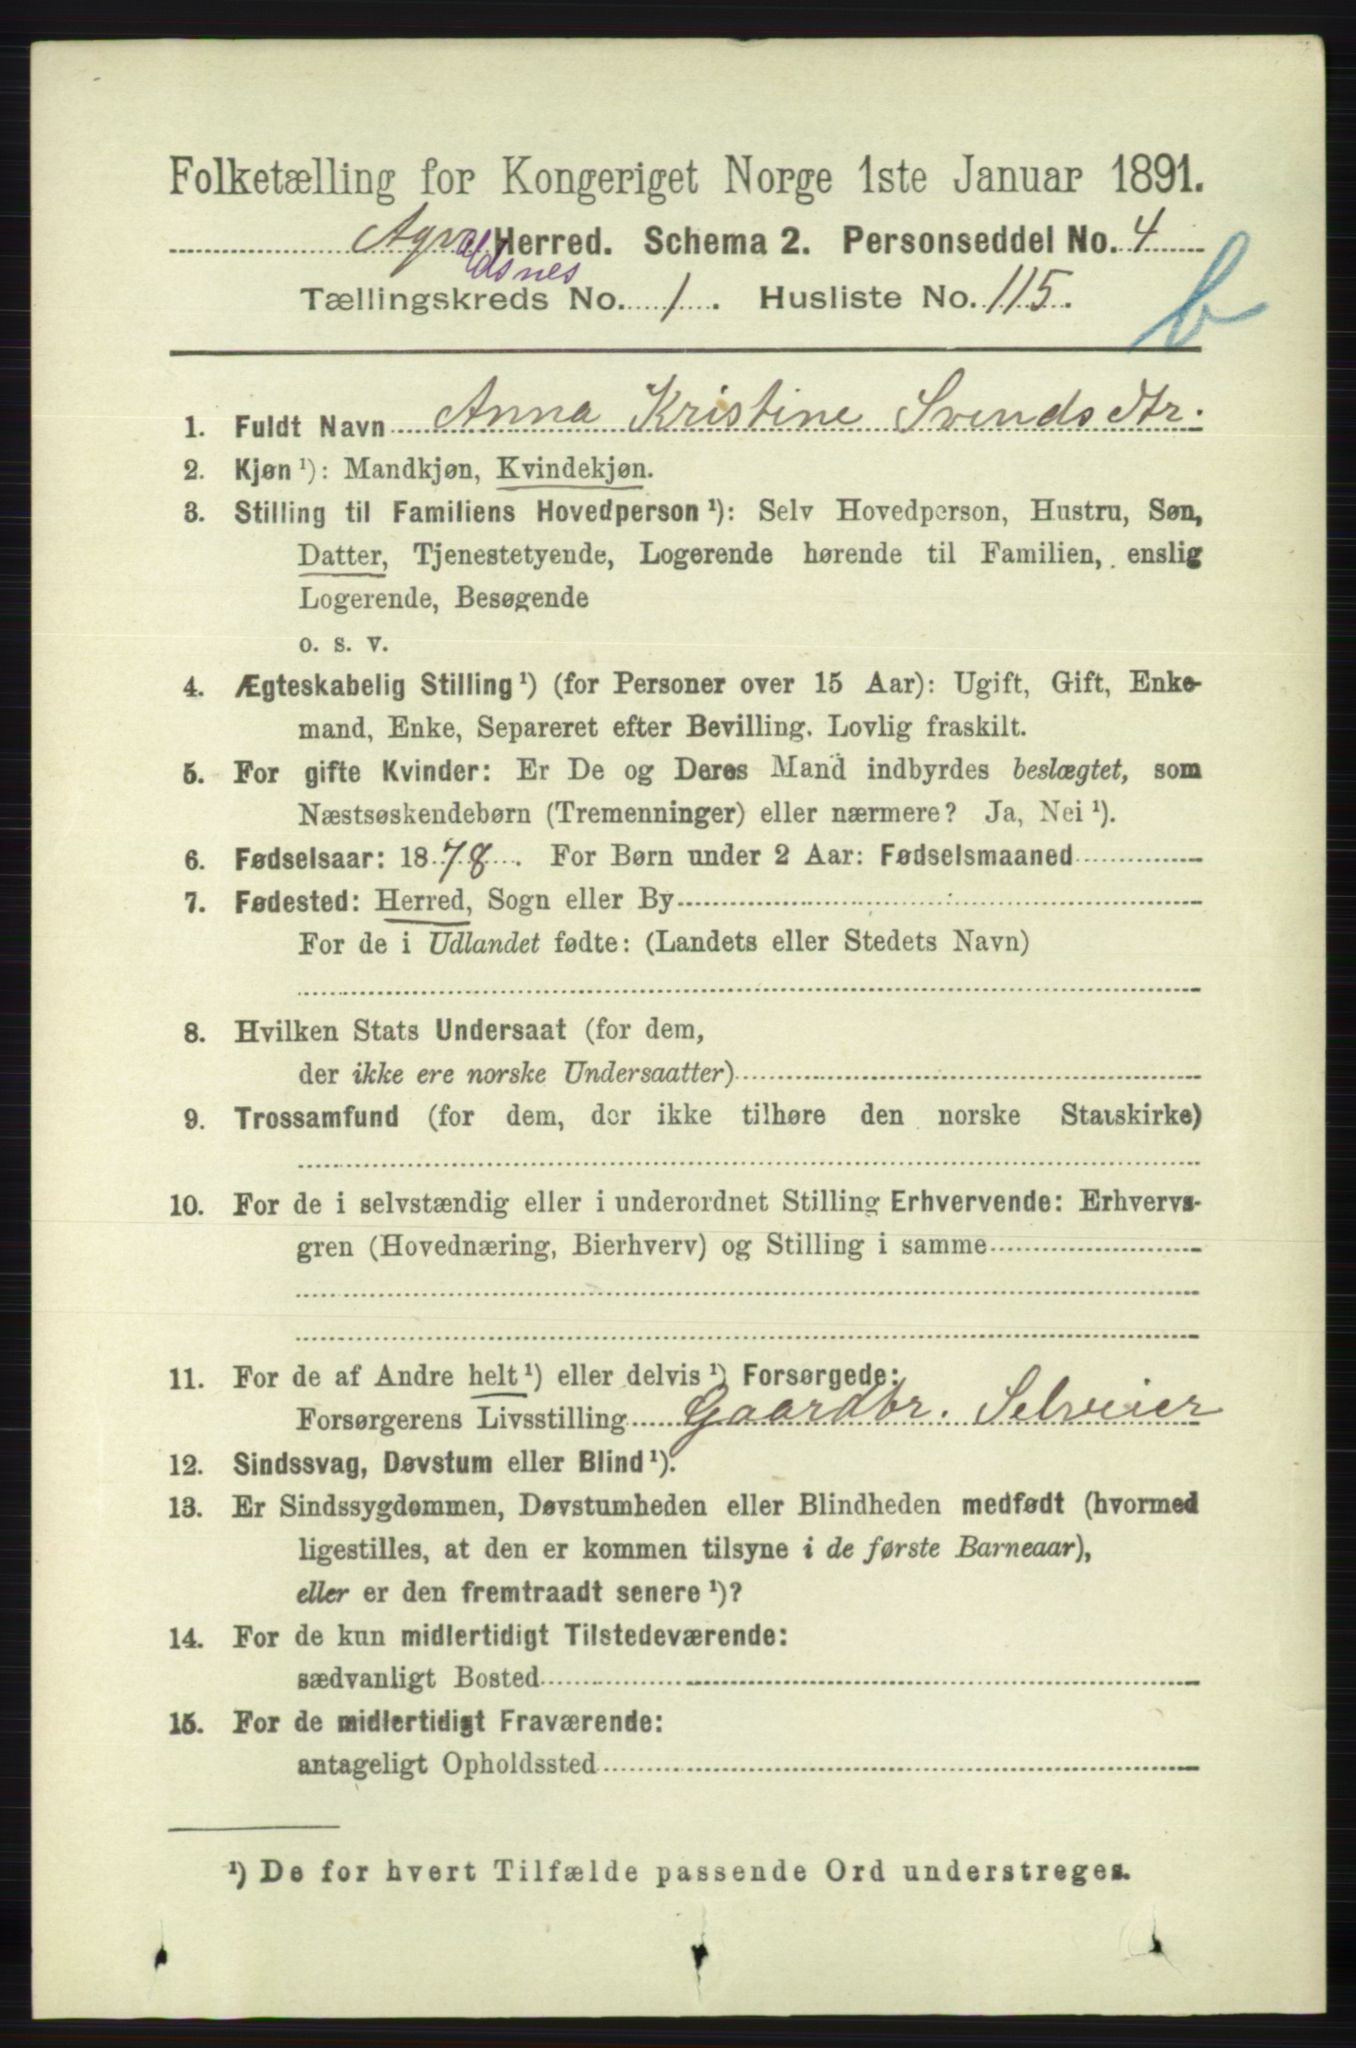 Folketælling for Kongeriget Norge 1ste Januar 1891.
Agvaldsnes Herred. Schema 2. Personseddel No. 4
Tællingskreds No. 1. Husliste No. 115.
b
1. Fuldt Navn Anna Kristine Svendsdtr.
2. Kjøn ¹): Mandkjøn, Kvindekjøn.
3. Stilling til Familiens Hovedperson ¹): Selv Hovedperson, Hustru, Søn,
Datter, Tjenestetyende, Logerende hørende til Familien, enslig
Logerende, Besøgende
o. s. v.
4. Ægteskabelig Stilling ¹) (for Personer over 15 Aar): Ugift, Gift, Enke-
mand, Enke, Separeret efter Bevilling. Lovlig fraskilt.
5. For gifte Kvinder: Er De og Deres Mand indbyrdes beslægtet, som
Næstsøskendebørn (Tremenninger) eller nærmere? Ja, Nei ¹).
6. Fødselsaar: 1878. For Børn under 2 Aar: Fødselsmaaned
7. Fødested: Herred, Sogn eller By
For de i Udlandet fødte: (Landets eller Stedets Navn)
8. Hvilken Stats Undersaat (for dem,
der ikke ere norske Undersaatter)
9. Trossamfund (for dem, der ikke tilhøre den norske Statskirke)
10. For de i selvstændig eller i underordnet Stilling Erhvervende: Erhvervs-
gren (Hovednæring, Bierhverv) og Stilling i samme
11. For de af Andre helt ¹) eller delvis ¹) Forsørgede:
Forsørgerens Livsstilling Gaardbr. Selveier
12. Sindssvag, Døvstum eller Blind ¹).
13. Er Sindssygdommen, Døvstumheden eller Blindheden medfødt (hvormed
ligestilles, at den er kommen tilsyne i de første Barneaar),
eller er den fremtraadt senere ¹)?
14. For de kun midlertidigt Tilstedeværende:
sædvanligt Bosted
15. For de midlertidigt Fraværende:
antageligt Opholdssted
¹) De for hvert Tilfælde passende Ord understreges.